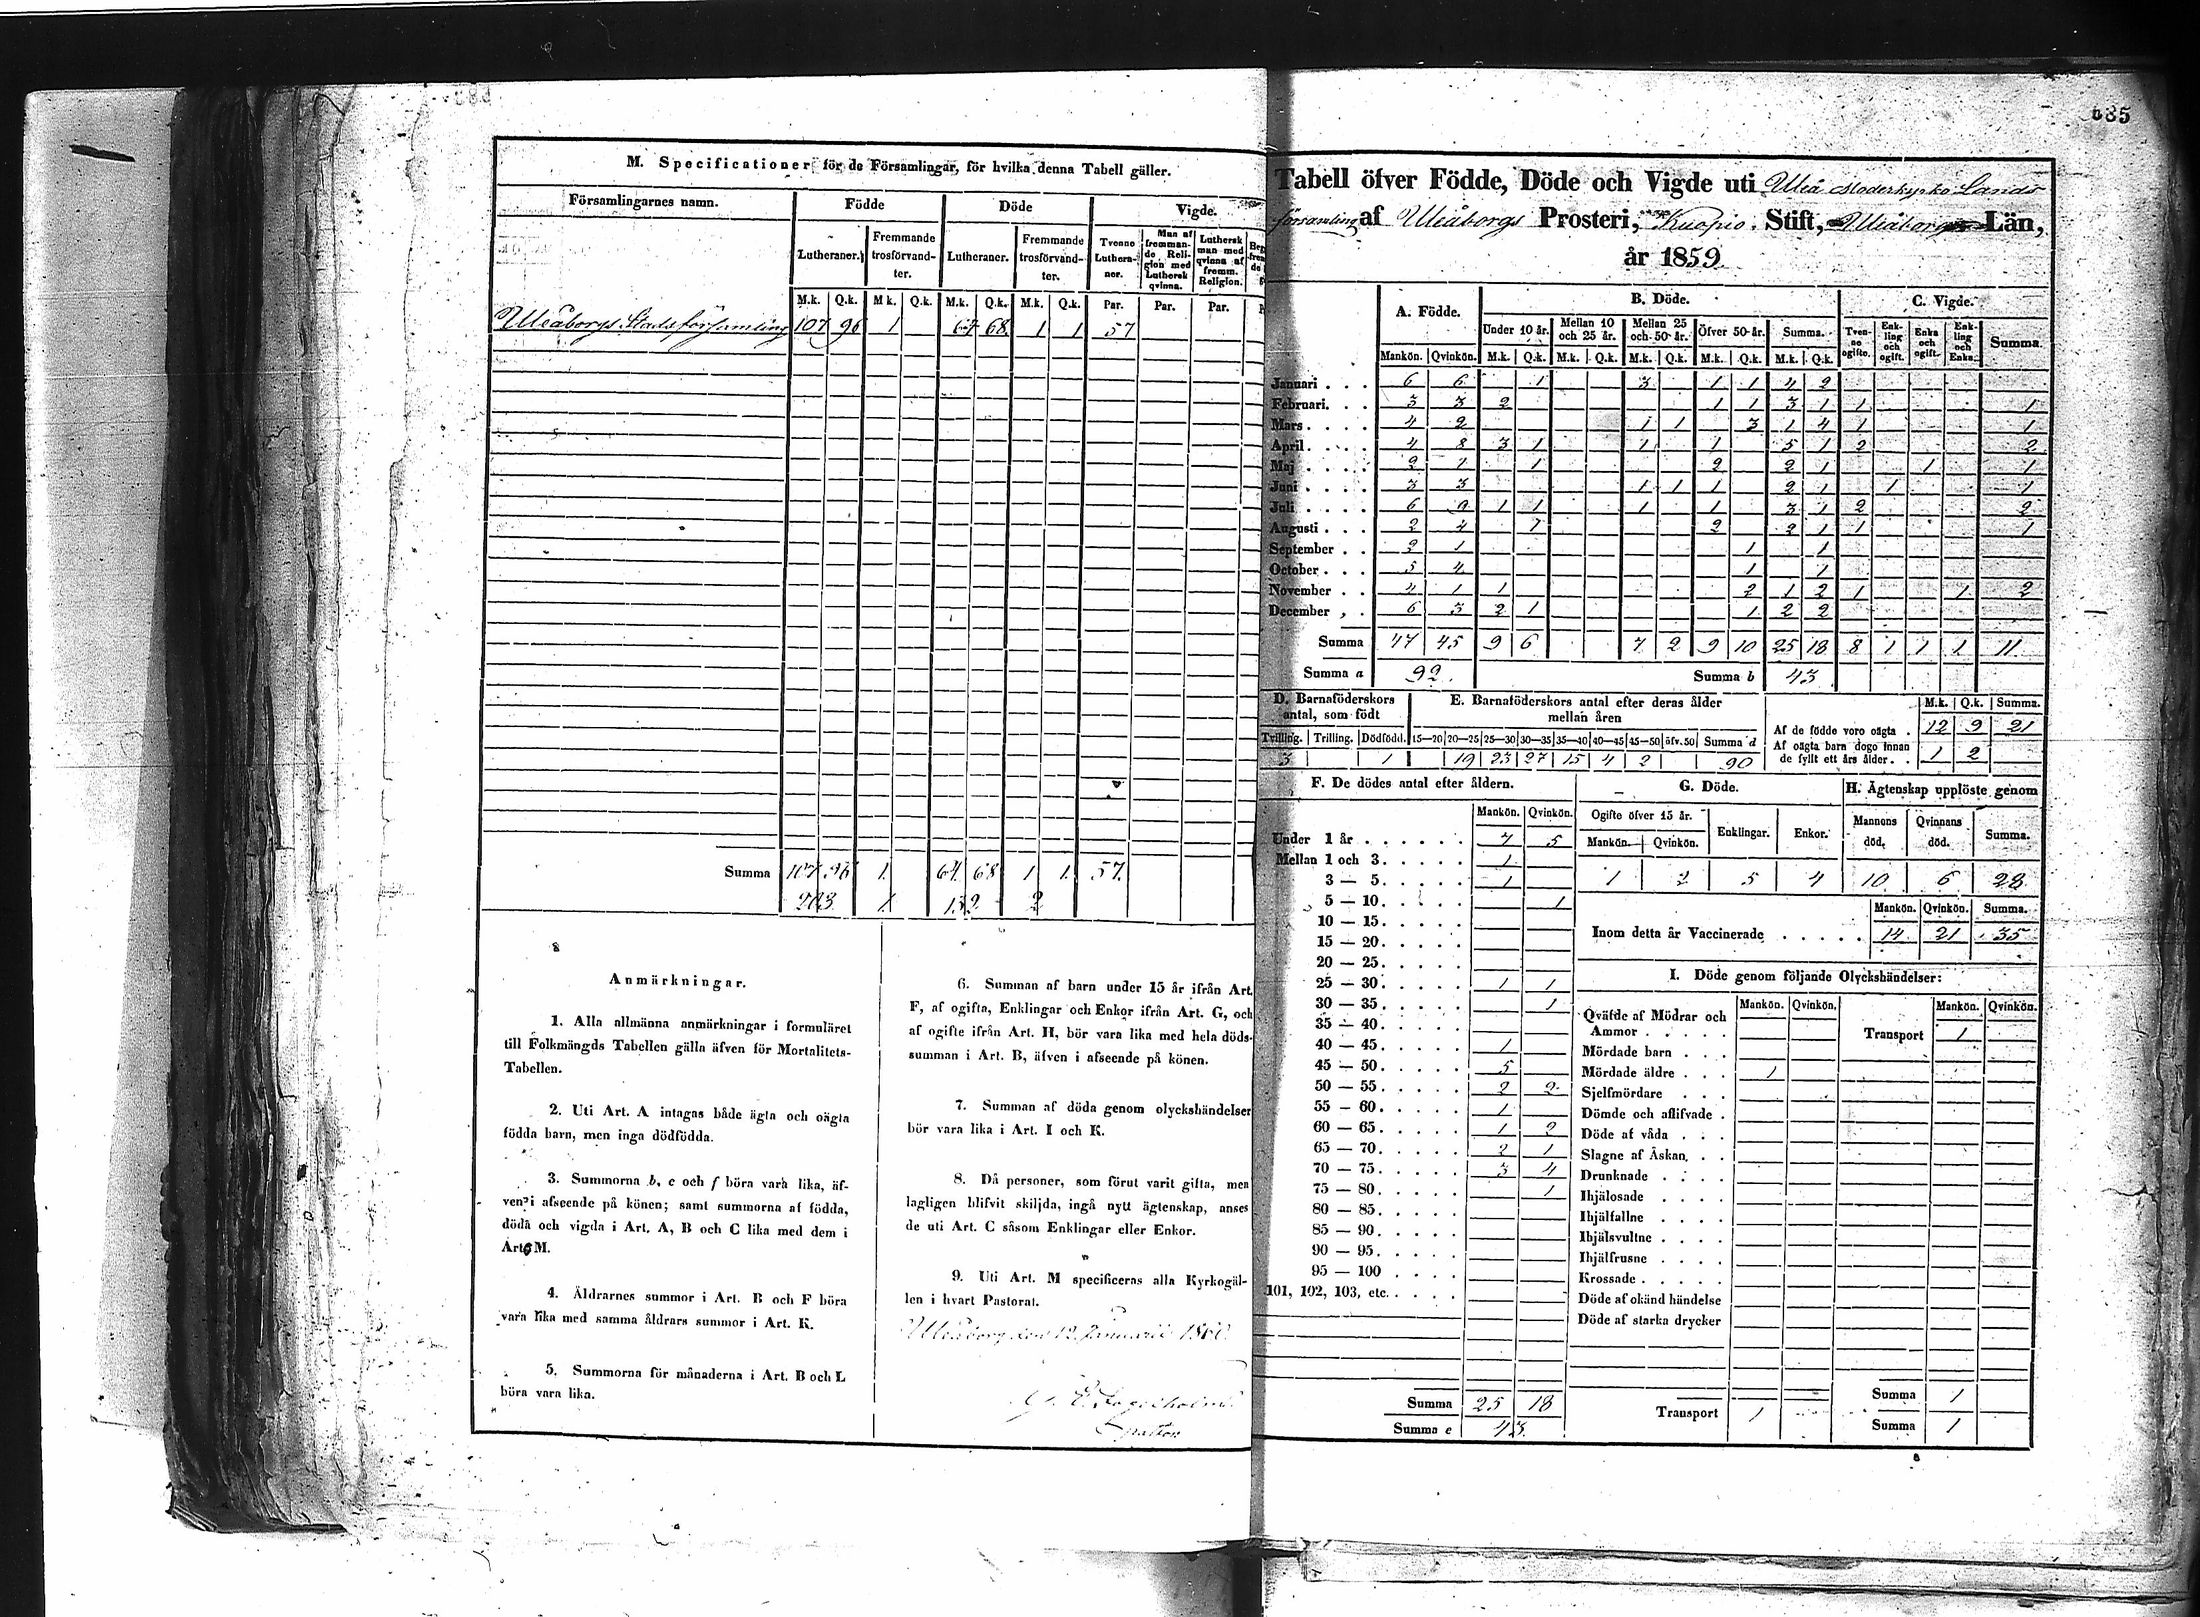 M. Specificationer för de Församlingar, för hvilka denna Tabell gäller.
Församlingarnes namn. Födde Döde Vigde.
Lutheraner. Fremmande trosförvandter. Lutheraner. Fremmande trosförvandter. Tvenne Lutheraner. Man af fremmande Religion med Luthersk qvinna. Luthersk man med qvinna af fremm. Religion.
M.k. Q.k. M k. Q.k. M.k. Q.k. M.k. Q.k. Par. Par. Par.
Uleåborgs Stadsförsamling 107 96 1 64 68 1 1 57
Summa 107 96 1 64 68 1 1 57
203 1 132 2
Anmärkningar.
1. Alla allmänna anmärkningar i formuläret
till Folkmängds Tabellen gälla äfven för Mortalitets-
Tabellen.
2. Uti Art. A intagas både ägta och oägta
födda barn, men inga dödfödda.
3. Summorna b, c och f böra vara lika, äf-
ven i afseende på könen; samt summorna af födda,
döda och vigda i Art. A, B och C lika med dem i
Art. M.
4. Åldrarnes summor i Art. B och F böra
vara lika med samma åldrars summor i Art. K.
5. Summorna för månaderna i Art. B och L
böra vara lika.
6. Summan af barn under 15 år ifrån Art.
F, af ogifta, Enklingar och Enkor ifrån Art. G, och
af ogifte ifrån Art. H, bör vara lika med hela döds-
summan i Art. B, äfven i afseende på könen.
7. Summan af döda genom olyckshändelser
bör vara lika i Art. I och K.
8. Då personer, som förut varit gifta, men
lagligen blifvit skiljda, ingå nytt ägtenskap, anses
de uti Art. C såsom Enklingar eller Enkor.
9. Uti Art. M specificeras alla Kyrkogäl-
len i hvart Pastorat.
Uleåborg den 12 Januarii 1860.
35
Tabell öfver Födde, Döde och Vigde uti Uleå Moderkyrko Lands
församling af Uleåborgs Prosteri, Kuopio Stift, Uleåborgs Län,
år 1859
A. Födde. B. Döde. C. Vigde.
Under 10 år. Mellan 10 och 25 år. Mellan 25 och 50 år. Öfver 50 år. Summa. Tvenne ogifte. Enkling och ogift. Enka och ogift. Enkling och Enka. Summa.
Mankön. Qvinkön. M.k. Q.k. M.k. Q.k. M.k. Q.k. M.k. Q.k. M.k. Q.k.
Januari 6 6 1 3 1 1 4 2
Februari. 3 3 2 1 1 3 1 1 1
Mars 4 2 1 1 3 1 4 1 1
April 4 8 3 1 1 1 5 1 2 2
Maj 2 1 1 2 2 1 1 1
Juni 3 3 1 1 1 2 1 1 1
Juli 6 9 1 1 1 1 3 1 2 2
Augusti 2 4 1 2 2 1 1 1
September 2 1 1 1
October 5 4 1 1
November 4 1 1 2 1 2 1 1 2
December 6 3 2 1 1 2 2
Summa 47 45 9 6 7 2 9 10 25 18 8 1 1 1 11
Summa a 92. Summa b 43
D. Barnaföderskors antal, som födt E. Barnaföderskors antal efter deras ålder mellan åren
M.k. Q.k. Summa.
Tvilling. Trilling. Dödfödd. 15—20 20—25 25—30 30—35 35—40 40—45 45—50 öfv. 50 Summa d
3 1 19 23 27 15 4 2 90
Af de födde voro oägta . 12 9 21
Af oägta barn dogo innan
de fyllt ett års ålder. . 1 2
F. De dödes antal efter åldern.
Mankön. Qvinkön.
Under 1 år 7 5
Mellan 1 och 3 1
3 — 5 1
5 — 10 1
10 — 15
15 — 20
20 — 25
25 — 30 1 1
30 — 35 1
35 — 40
40 — 45 1
45 — 50 5
50 — 55 2 2
55 — 60 1
60 — 65 1 2
65 — 70 2 1
70 — 75 3 4
75 — 80 1
80 — 85
85 — 90
90 — 95
95 — 100
101, 102, 103, etc.
Summa 25 18
Summa e 43
G. Döde. H. Ägtenskap upplöste genom
Ogifte öfver 15 år. Enklingar. Enkor. Mannens död. Qvinnans död. Summa.
Mankön. Qvinkön.
1 2 5 4 10 6 28
Mankön. Qvinkön. Summa.
Inom detta år Vaccinerade 14 21 35
I. Döde genom följande Olyckshändelser:
Mankön. Qvinkön. Mankön. Qvinkön.
Qväfde af Mödrar och
Ammor Transport 1
Mördade barn
Mördade äldre 1
Sjelfmördare
Dömde och aflifvade
Döde af våda
Slagne af Åskan
Drunknade
Ihjälosade
Ihjälfallne
Ihjälsvultne
Ihjälfrusne
Krossade
Döde af okänd händelse
Döde af starka drycker
Summa 1
Transport 1 Summa 1